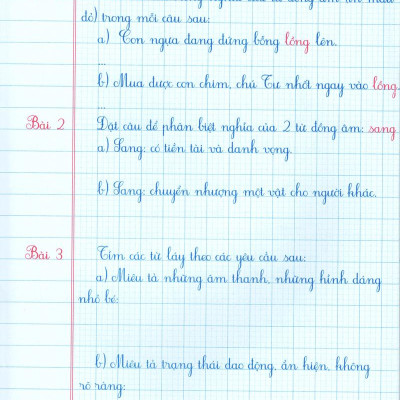 đỏ) trong mỗi câu sau:
a) Con ngựa đang đứng bỗng lồng lên.
...
b) Mua được con chim, chú Tư nhốt ngay vào lồng.
...
Bài 2 Đặt câu để phân biệt nghĩa của 2 từ đồng âm: sang
a) Sang: có tiền tài và danh vọng.
b) Sang: chuyển nhượng một vật cho người khác.
Bài 3 Tìm các từ láy theo các yêu cầu sau:
a) Miêu tả những âm thanh, những hình dáng
nhỏ bé:
b) Miêu tả trạng thái dao động, ẩn hiện, không
rõ ràng: